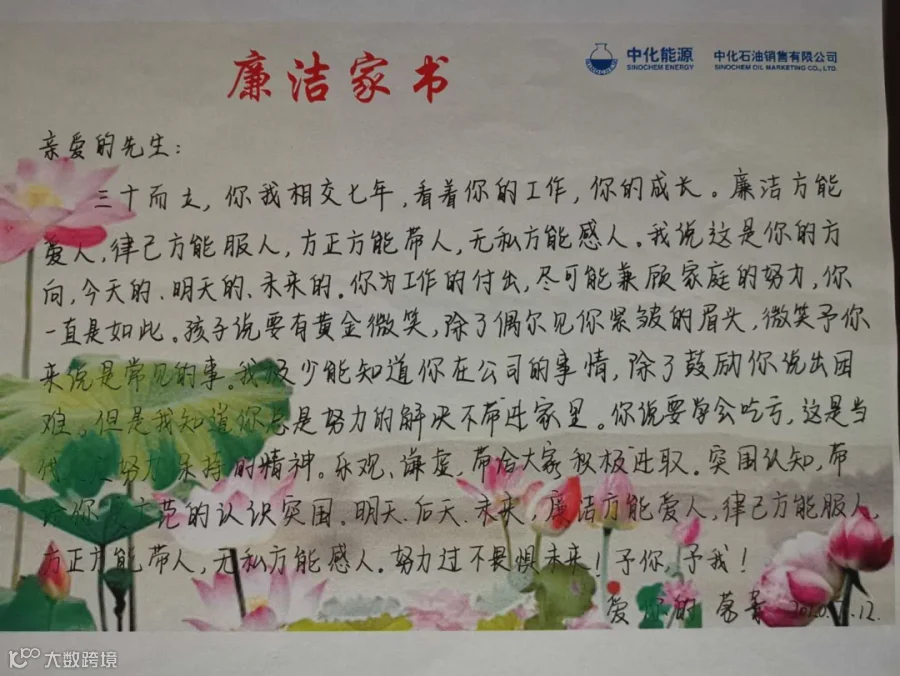 廉洁家书
中化能源
SINOCHEM ENERGY
中化石油销售有限公司
SINOCHEM OIL MARKETING CO., LTD.
亲爱的先生：
三十而立，你我相交七年，看着你的工作，你的成长。廉洁方能
爱人，律己方能服人，方正方能带人，无私方能感人。我说这是你的方
向，今天的、明天的、未来的。你为工作的付出，尽可能兼顾家庭的努力，你
一直是如此。孩子说要有黄金微笑，除了偶尔见你紧皱的眉头，微笑予你
来说是常见的事。我极少能知道你在公司的事情，除了鼓励你说出困
难。但是我知道你总是努力的解决不带进家里。你说要学会吃亏，这是当
代努力保持的精神。乐观、谦虚，带给大家积极进取。突围认知，带
给你范的认识突围。明天、后天、未来，廉洁方能爱人，律己方能服人，
方正方能带人，无私方能感人。努力过不畏惧未来！予你，予我！
爱你的
大数跨境